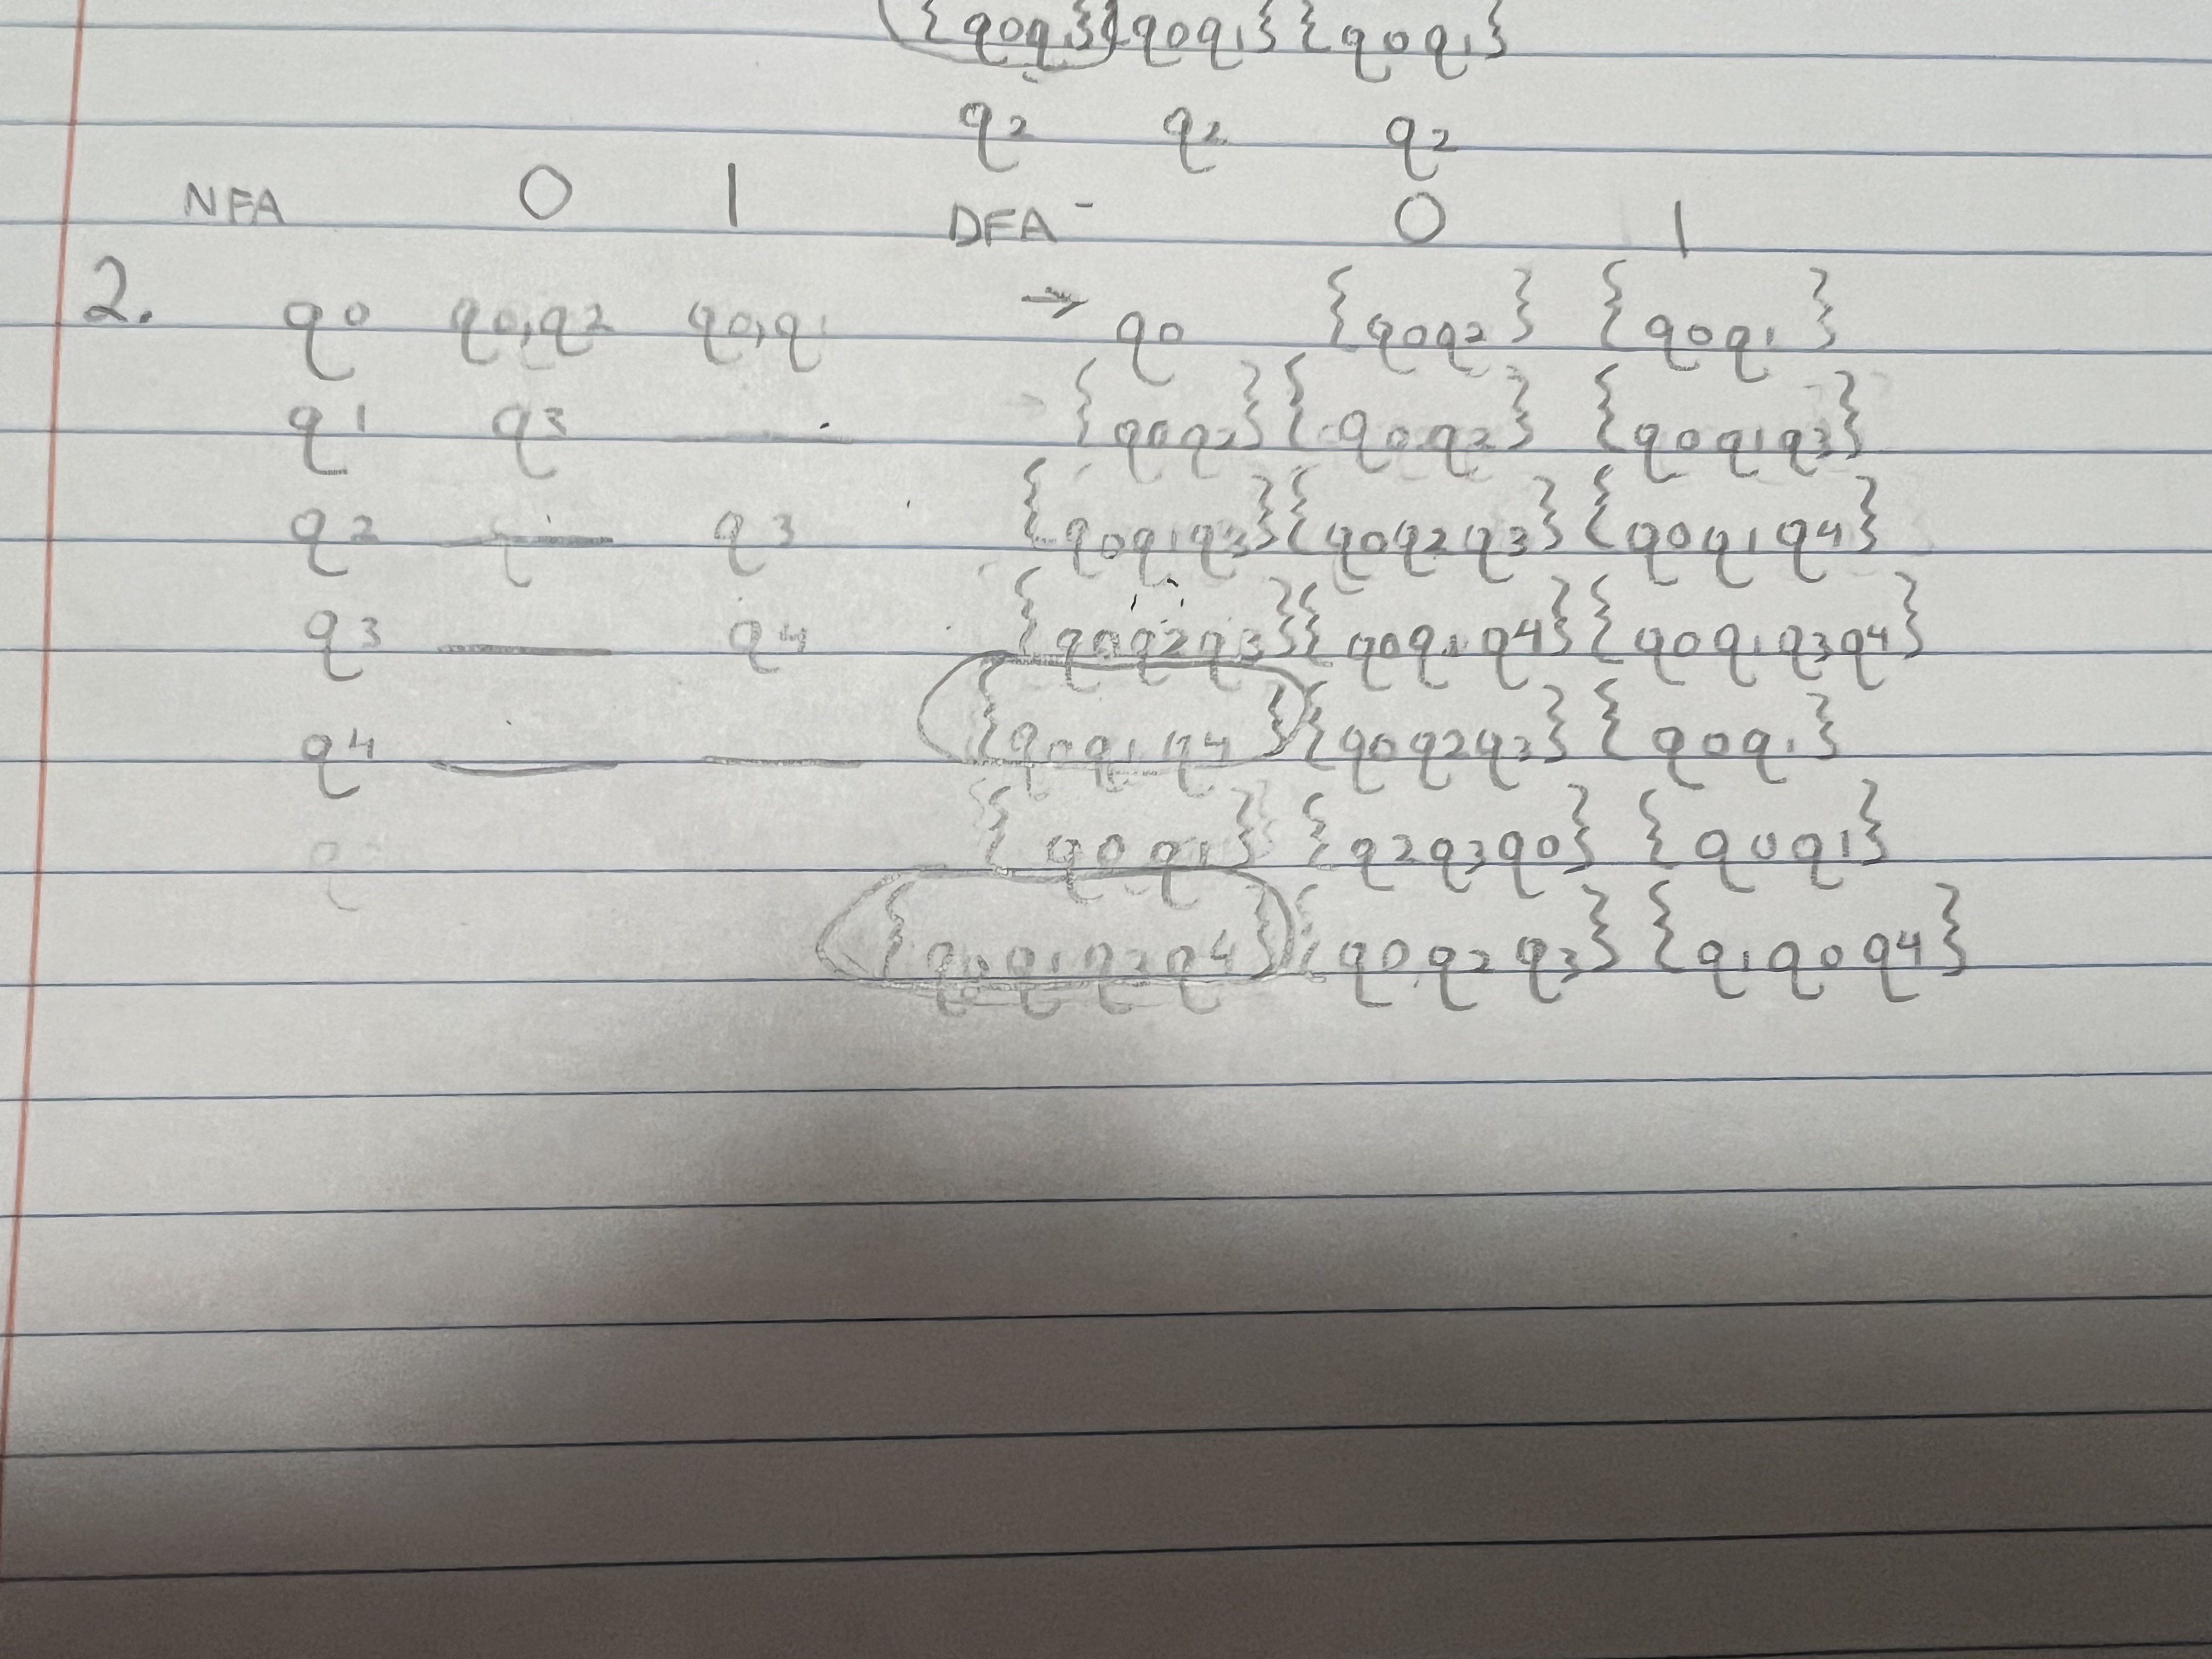 {q0q3} {q0q1} {q0q1}
q2 q2 q2
NFA 0 1 DFA - 0 1
2. q0 q0,q2 q0,q1 → q0 {q0q2} {q0q1}
q1 q3 — {q0q2} {q0q2} {q0q1q3}
q2 — q3 {q0q1q3} {q0q2q3} {q0q1q4}
q3 — q4 {q0q2q3} {q0q1q4} {q0q1q3q4}
q4 — — {q0q1q4} {q0q2q3} {q0q1}
{q0q1} {q2q3q0} {q0q1}
{q0q1q3q4} {q0q2q3} {q1q0q4}